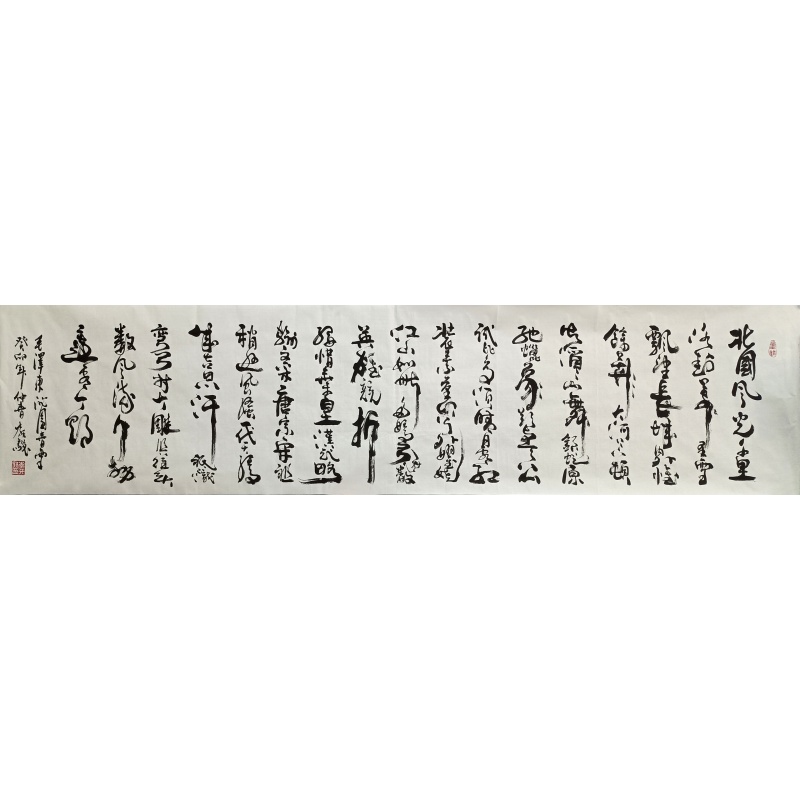 北國風光千里
冰封萬里雪
飄望長城內外惟
餘莽莽大河上下頓
失滔滔山舞銀蛇原
馳蠟象欲與天公
試比高須晴日看紅
裝素裹分外妖嬈
江山如此多嬌引無數
英雄競折
腰惜秦皇漢武略
輸文采唐宗宋祖
稍遜風騷一代天驕
成吉思汗祇識
彎弓射大雕俱往矣
數風流人物
還看今朝
毛澤東沁園春雪
癸卯年仲春